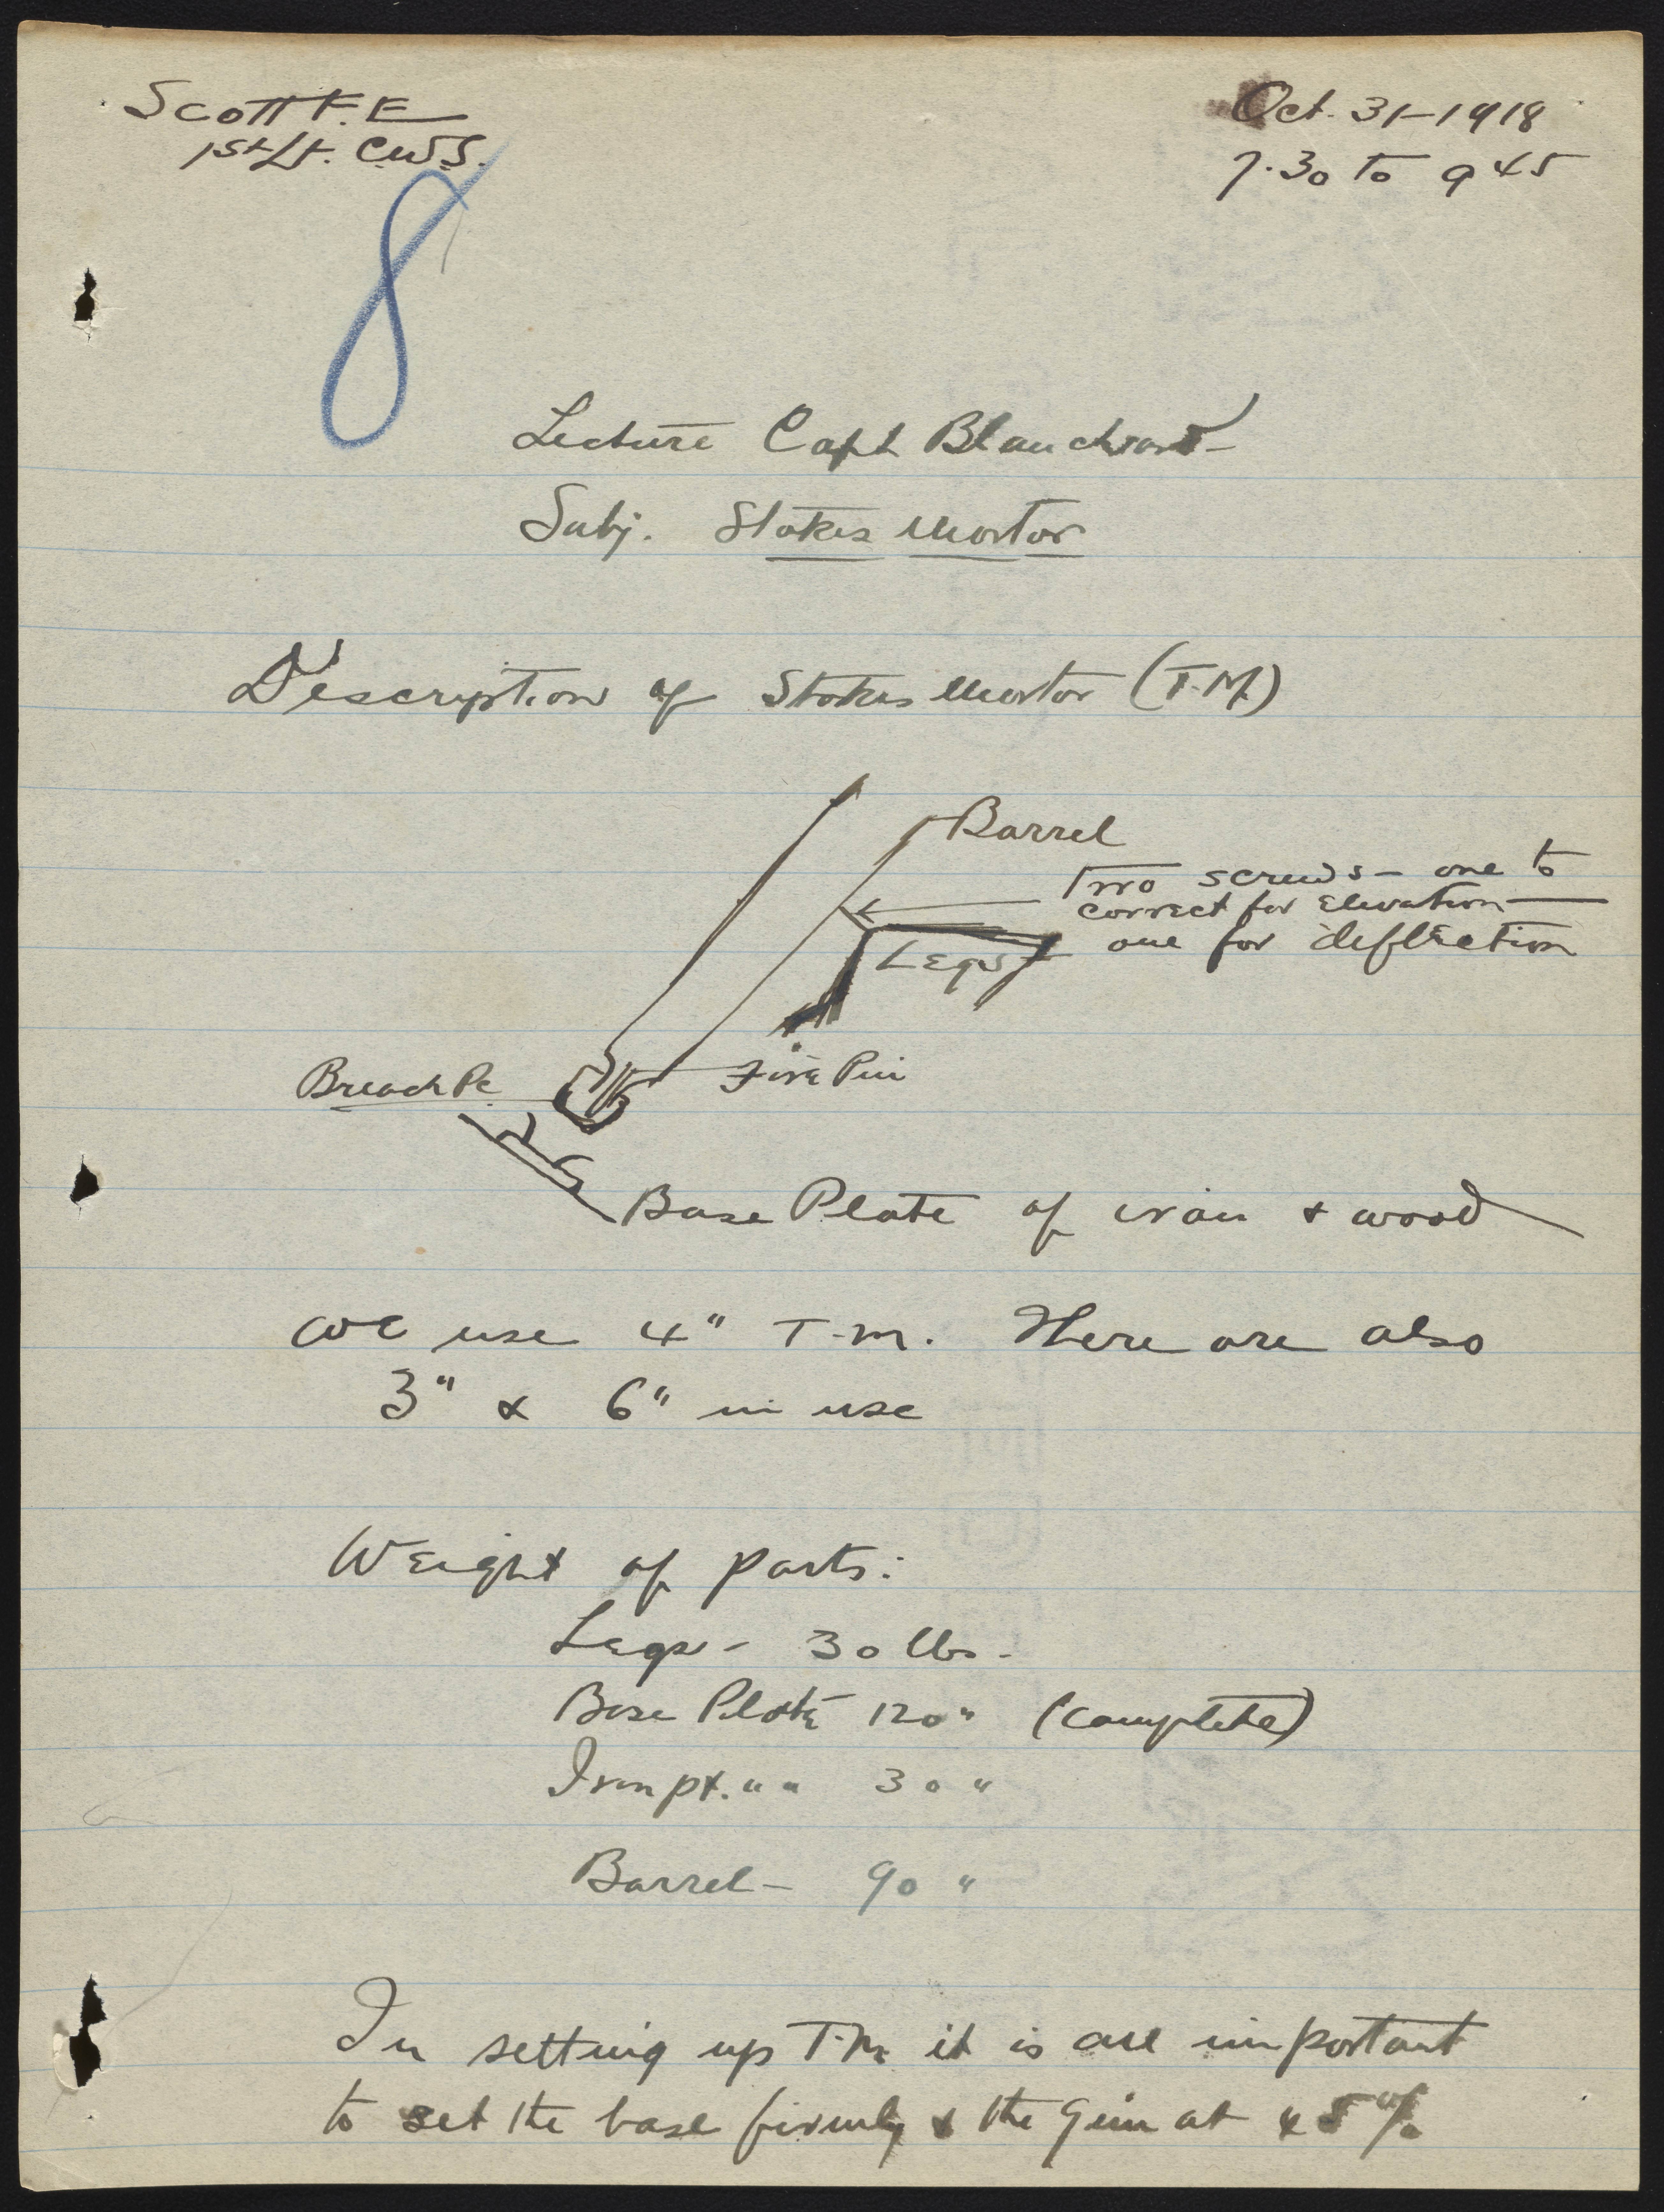 Scott F.E
1st Lt. C.W.S.
Oct. 31-1918
7.30 to 9 45
8
Lecture Capt Blanchard
Subj. Stokes Mortor
Description of Stokes Mortor (T.M.)
Barrel
Two screws - one to
correct for Elevation
one for deflection
Legs
Breach Pc
Fire Pin
Base Plate of iron & wood
We use 4" T.M. There are also
3" & 6" in use
Weight of parts:
Legs - 30 lbs -
Base Plate 120 " (complete)
Iron pt. " " 30 "
Barrel - 90 "
In setting up T.M. it is all important
to set the base firmly & the Gun at 45%